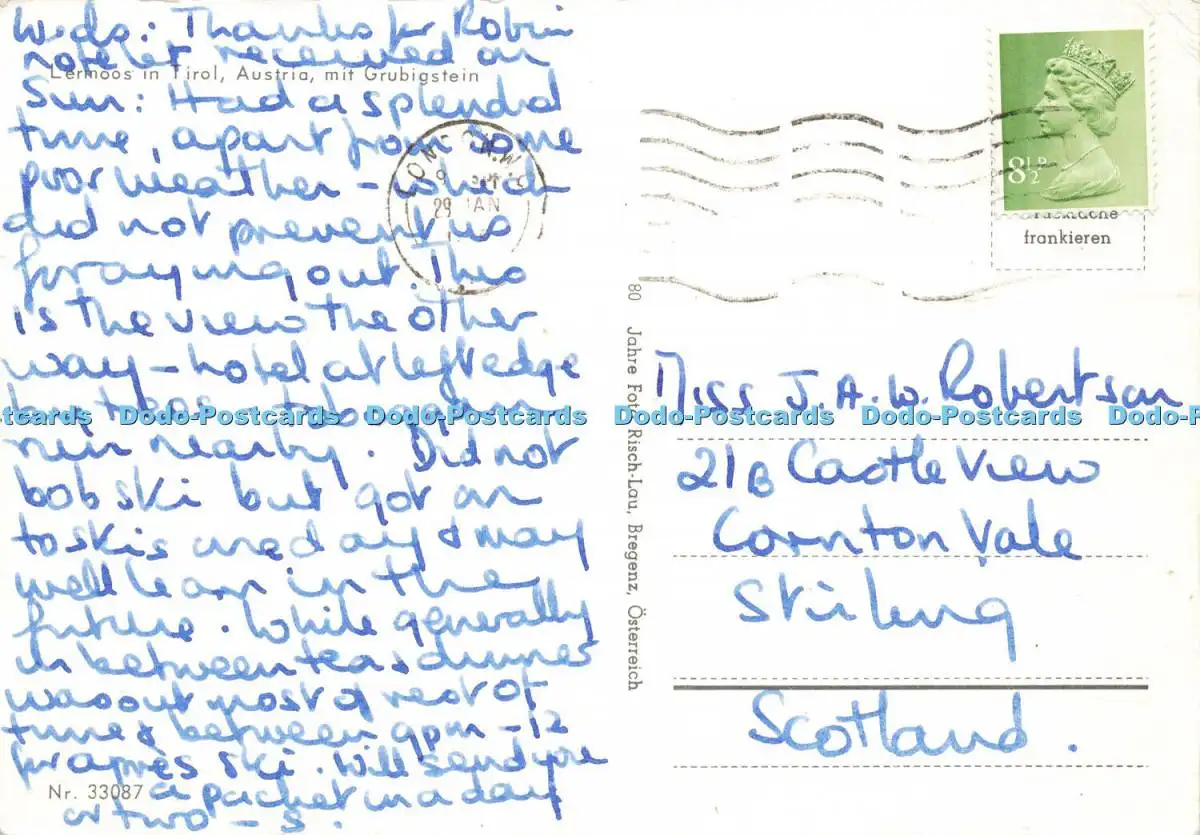 Weds: Thanks for Robin
notelet received on
Lermoos in Tirol, Austria, mit Grubigstein
Sun: Had a splendid
time, apart from some
poor weather - which
did not prevent us
foraying out. This
is the view the other
way - hotel at left edge
by trees toboggan
run nearby. Did not
bob ski but got on
to skis one day & may
well learn in the
future. While generally
in between tea & dinner
was out most of rest of
time & between 9pm - 12
for après ski. Will send you
a packet in a day
or two - S.
Nr. 33087
LONDON N.W.
29 JAN
8½P
frankieren
80 Jahre Foto Risch-Lau, Bregenz, Österreich
Miss J. A. W. Robertson
21B Castle View
Cornton Vale
Stirling
Scotland.
Dodo-Postcards Dodo-Postcards Dodo-Postcards Dodo-Postcards